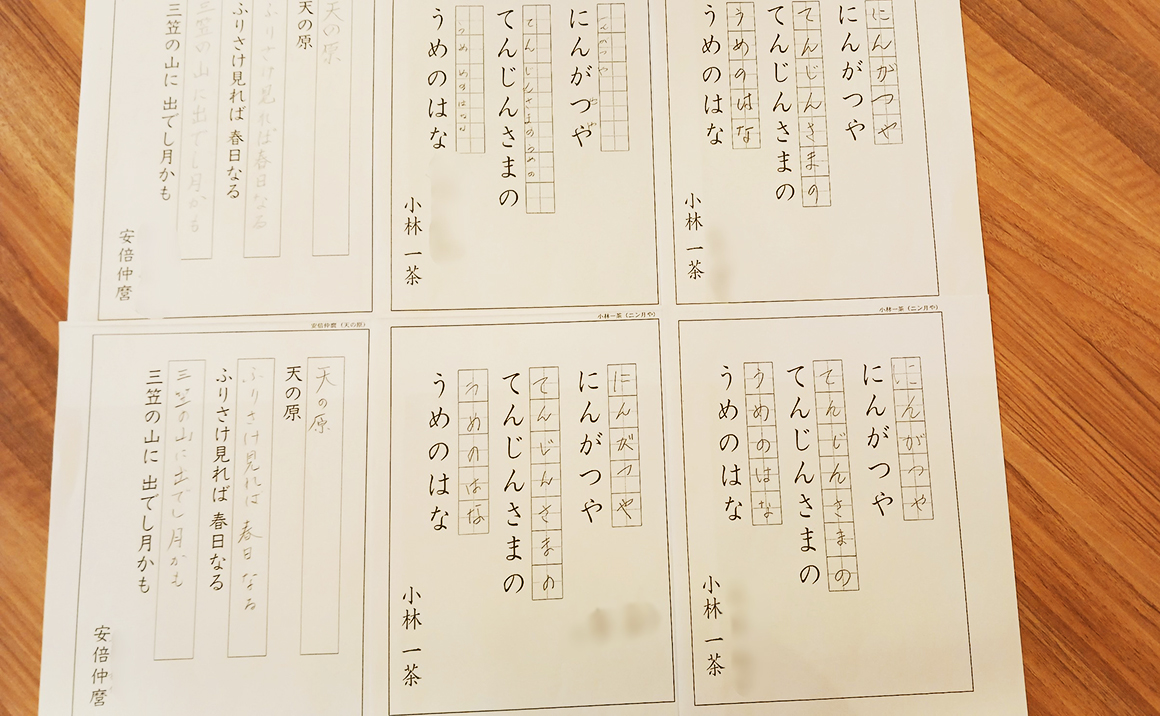 にんがつや
にんがつや
てんじんさまの
てんじんさまの
うめのはな
うめのはな
小林一茶
にんがつや
てんじんさまのうめの
てんじんさまの
うめのはな
小林一茶
天の原
天の原
ふりさけ見れば春日なる
ふりさけ見れば 春日なる
三笠の山に出でし月かも
三笠の山に 出でし月かも
安倍仲麿
小林一茶（ニン月や）
にんがつや
にんがつや
てんじんさまの
てんじんさまの
うめのはな
うめのはな
小林一茶
小林一茶（ニン月や）
にんがつや
にんがつや
てんじんさまの
てんじんさまの
うめのはな
うめのはな
小林一茶
安倍仲麿（天の原）
天の原
天の原
ふりさけ見れば 春日なる
ふりさけ見れば 春日なる
三笠の山に出でし月かも
三笠の山に 出でし月かも
安倍仲麿